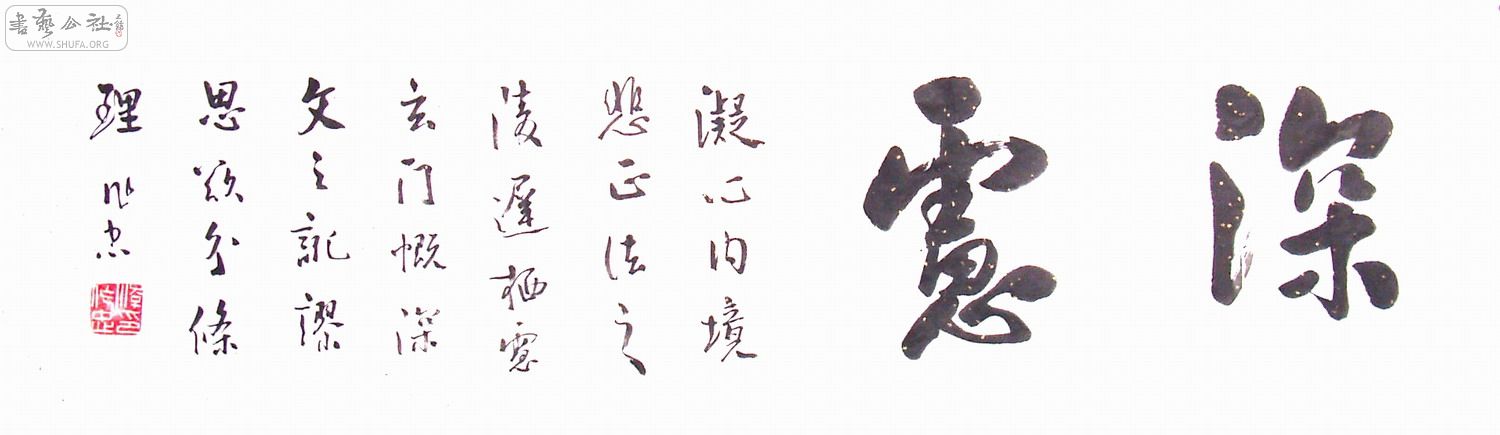 深慮
凝心内境
悲正法之
陵遲栖慮
玄门慨深
文之訛謬
思欲分條
理 作忠
書藝公社
WWW.SHUFA.ORG